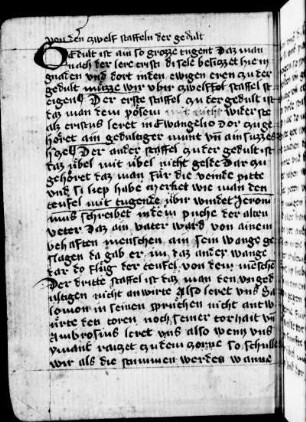 von den zwelf staffeln der gedult
Gedult ist ain so grosze tugent daz man
nach der lere cristi di sele besiczet hie in
gnaden und dort in den ewigen eren zu der
gedult mücze wir uber zwelf staffel st
eigen Der erste staffel zu der gedult ist
daz man dem pösem nit wider ste
als cristus leret in Ewangelio dor zu ge
höret ain gedultiger munt vnd ain suzzes
Der ander staffel zu der gedult ist
daz übel mit übel nicht gelte Dar zu
gehöret daz man für die veinde pitte
vnd si liep habe merket wie man den
teufel mit tugende über windet Jeroni
mus schreibet in dem puche der alten
veter daz ain vater ward von ainem
behaften menschen an sein wange ge
slagen da gab er im daz ander wange
dar do flüg der teufel von dem mensche
Der dritte staffel ist daz man den unged
ultigen nicht antwürte Also leret uns Sa
lomon in seinen sprüchen nicht antw
ürte den toren noch seiner torhait vnd
Ambrosius leret uns also wenn uns
ymant raiczet zu dem zorne so schulle
wir als die stummen werden wanne